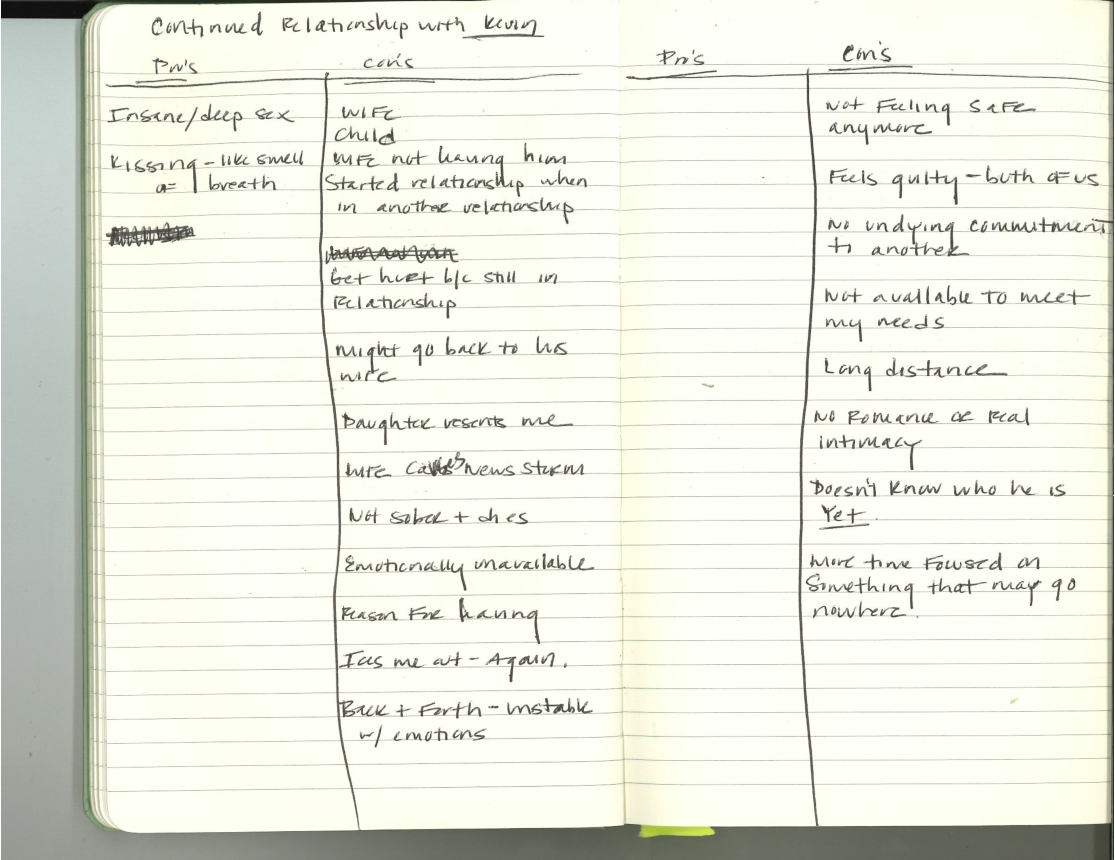 Continued Relationship with Kevin
Pro's
Insane/deep sex
Kissing - like smell
of breath
Con's
Wife
Child
Wife not leaving him
Started relationship when
in another relationship
Get hurt b/c still in
Relationship
Might go back to his
wife
Daughter resents me
Wife News Storm
Not sober + dies
Emotionally unavailable
Reason For leaving
Ices me out - Again.
Back + Forth - unstable
w/ emotions
Pro's
Con's
Not Feeling Safe
anymore
Feels guilty - both of us
No undying commitment
to another
Not available to meet
my needs
Long distance
No Romance or Real
intimacy
Doesn't know who he is
Yet.
More time Focused on
Something that may go
nowhere.